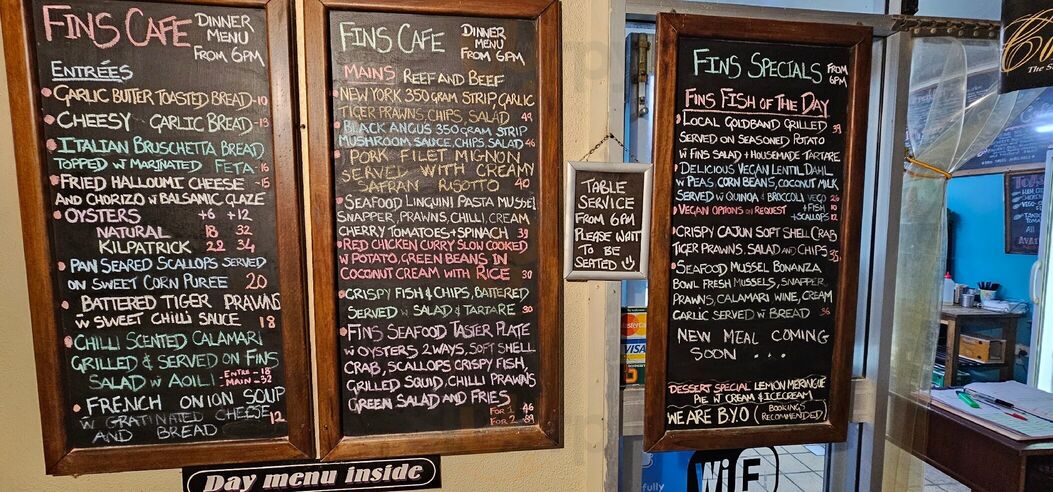 FINS CAFE
DINNER
MENU
FROM 6PM
ENTRÉES
GARLIC BUTTER TOASTED BREAD-10
CHEESY GARLIC BREAD-13
ITALIAN BRUSCHETTA BREAD
TOPPED W MARINATED FETA-16
FRIED HALLOUMI CHEESE -15
AND CHORIZO W BALSAMIC GLAZE
OYSTERS +6 +12
NATURAL 18 32
KILPATRICK 22 34
PAN SEARED SCALLOPS SERVED
ON SWEET CORN PUREE 20
BATTERED TIGER PRAWNS
W SWEET CHILLI SAUCE 18
CHILLI SCENTED CALAMARI
GRILLED & SERVED ON FINS
SALAD W AOILI ENTRE-18
MAIN-32
FRENCH ONION SOUP
W GRATINATED CHEESE 12
AND BREAD
FINS CAFE
DINNER
MENU
FROM 6PM
MAINS REEF AND BEEF
NEW YORK 350 GRAM STRIP, GARLIC
TIGER PRAWNS, CHIPS, SALAD 49
BLACK ANGUS 350 GRAM STRIP
MUSHROOM SAUCE, CHIPS, SALAD 46
PORK FILET MIGNON
SERVED WITH CREAMY
SAFRAN RISOTTO 40
SEAFOOD LINGUINI PASTA MUSSEL
SNAPPER, PRAWNS, CHILLI, CREAM
CHERRY TOMATOES + SPINACH 39
RED CHICKEN CURRY SLOW COOKED
W POTATO, GREEN BEANS IN
COCONUT CREAM WITH RICE 30
CRISPY FISH & CHIPS, BATTERED
SERVED W SALAD & TARTARE 30
FINS SEAFOOD TASTER PLATE
W OYSTERS 2 WAYS, SOFT SHELL
CRAB, SCALLOPS CRISPY FISH,
GRILLED SQUID, CHILLI PRAWNS
GREEN SALAD AND FRIES
FOR 1 46
FOR 2 89
TABLE
SERVICE
FROM 6PM
PLEASE WAIT
TO BE
SEATED
FINS SPECIALS FROM
6PM
FINS FISH OF THE DAY
LOCAL GOLDBAND GRILLED 39
SERVED ON SEASONED POTATO
W FINS SALAD + HOUSEMADE TARTARE
DELICIOUS VEGAN LENTIL DAHL
W PEAS, CORN BEANS, COCONUT MILK
SERVED W QUINOA & BROCCOLI VEGO 26
VEGAN OPTIONS ON REQUEST + FISH 10
+ SCALLOPS 12
CRISPY CAJUN SOFT SHELL CRAB
TIGER PRAWNS, SALAD AND CHIPS 35
SEAFOOD MUSSEL BONANZA
BOWL FRESH MUSSELS, SNAPPER
PRAWNS, CALAMARI WINE, CREAM
GARLIC SERVED W BREAD 36
NEW MEAL COMING
SOON ...
DESSERT SPECIAL LEMON MERINGUE
PIE W CREAM & ICECREAM
WE ARE B.Y.O (BOOKINGS
RECOMMENDED)
Day menu inside
VISA
WiF